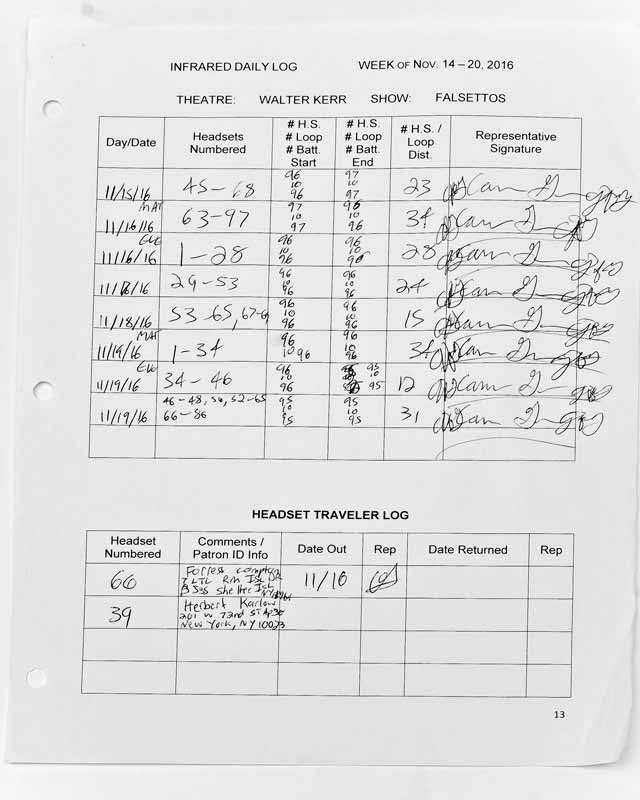 INFRARED DAILY LOG WEEK OF NOV. 14 – 20, 2016
THEATRE: WALTER KERR SHOW: FALSETTOS
Day/Date Headsets Numbered # H.S. # Loop # Batt. Start # H.S. # Loop # Batt. End # H.S. / Loop Dist. Representative Signature
11/15/16 45-68 96 10 96 97 10 97 23
MAT 11/16/16 63-97 97 10 97 96 10 96 34
EVE 11/16/16 1-28 96 10 96 96 10 96 28
11/18/16 29-53 96 10 96 96 10 96 24
11/18/16 53-65, 67-6 96 10 96 96 10 96 15
MAT 11/19/16 1-34 96 10 96 96 10 96 34
EVE 11/19/16 34-46 96 10 96 95 10 95 12
11/19/16 46-48, 50, 52-65 66-86 95 10 95 95 10 95 31
HEADSET TRAVELER LOG
Headset Numbered Comments / Patron ID Info Date Out Rep Date Returned Rep
66 Forrest Compton 7 LTL Rm Isl DR B 535 Shelter Isl NY 11/10
39 Herbert Karlow 201 W 72nd ST Ap New York, NY 10023
13